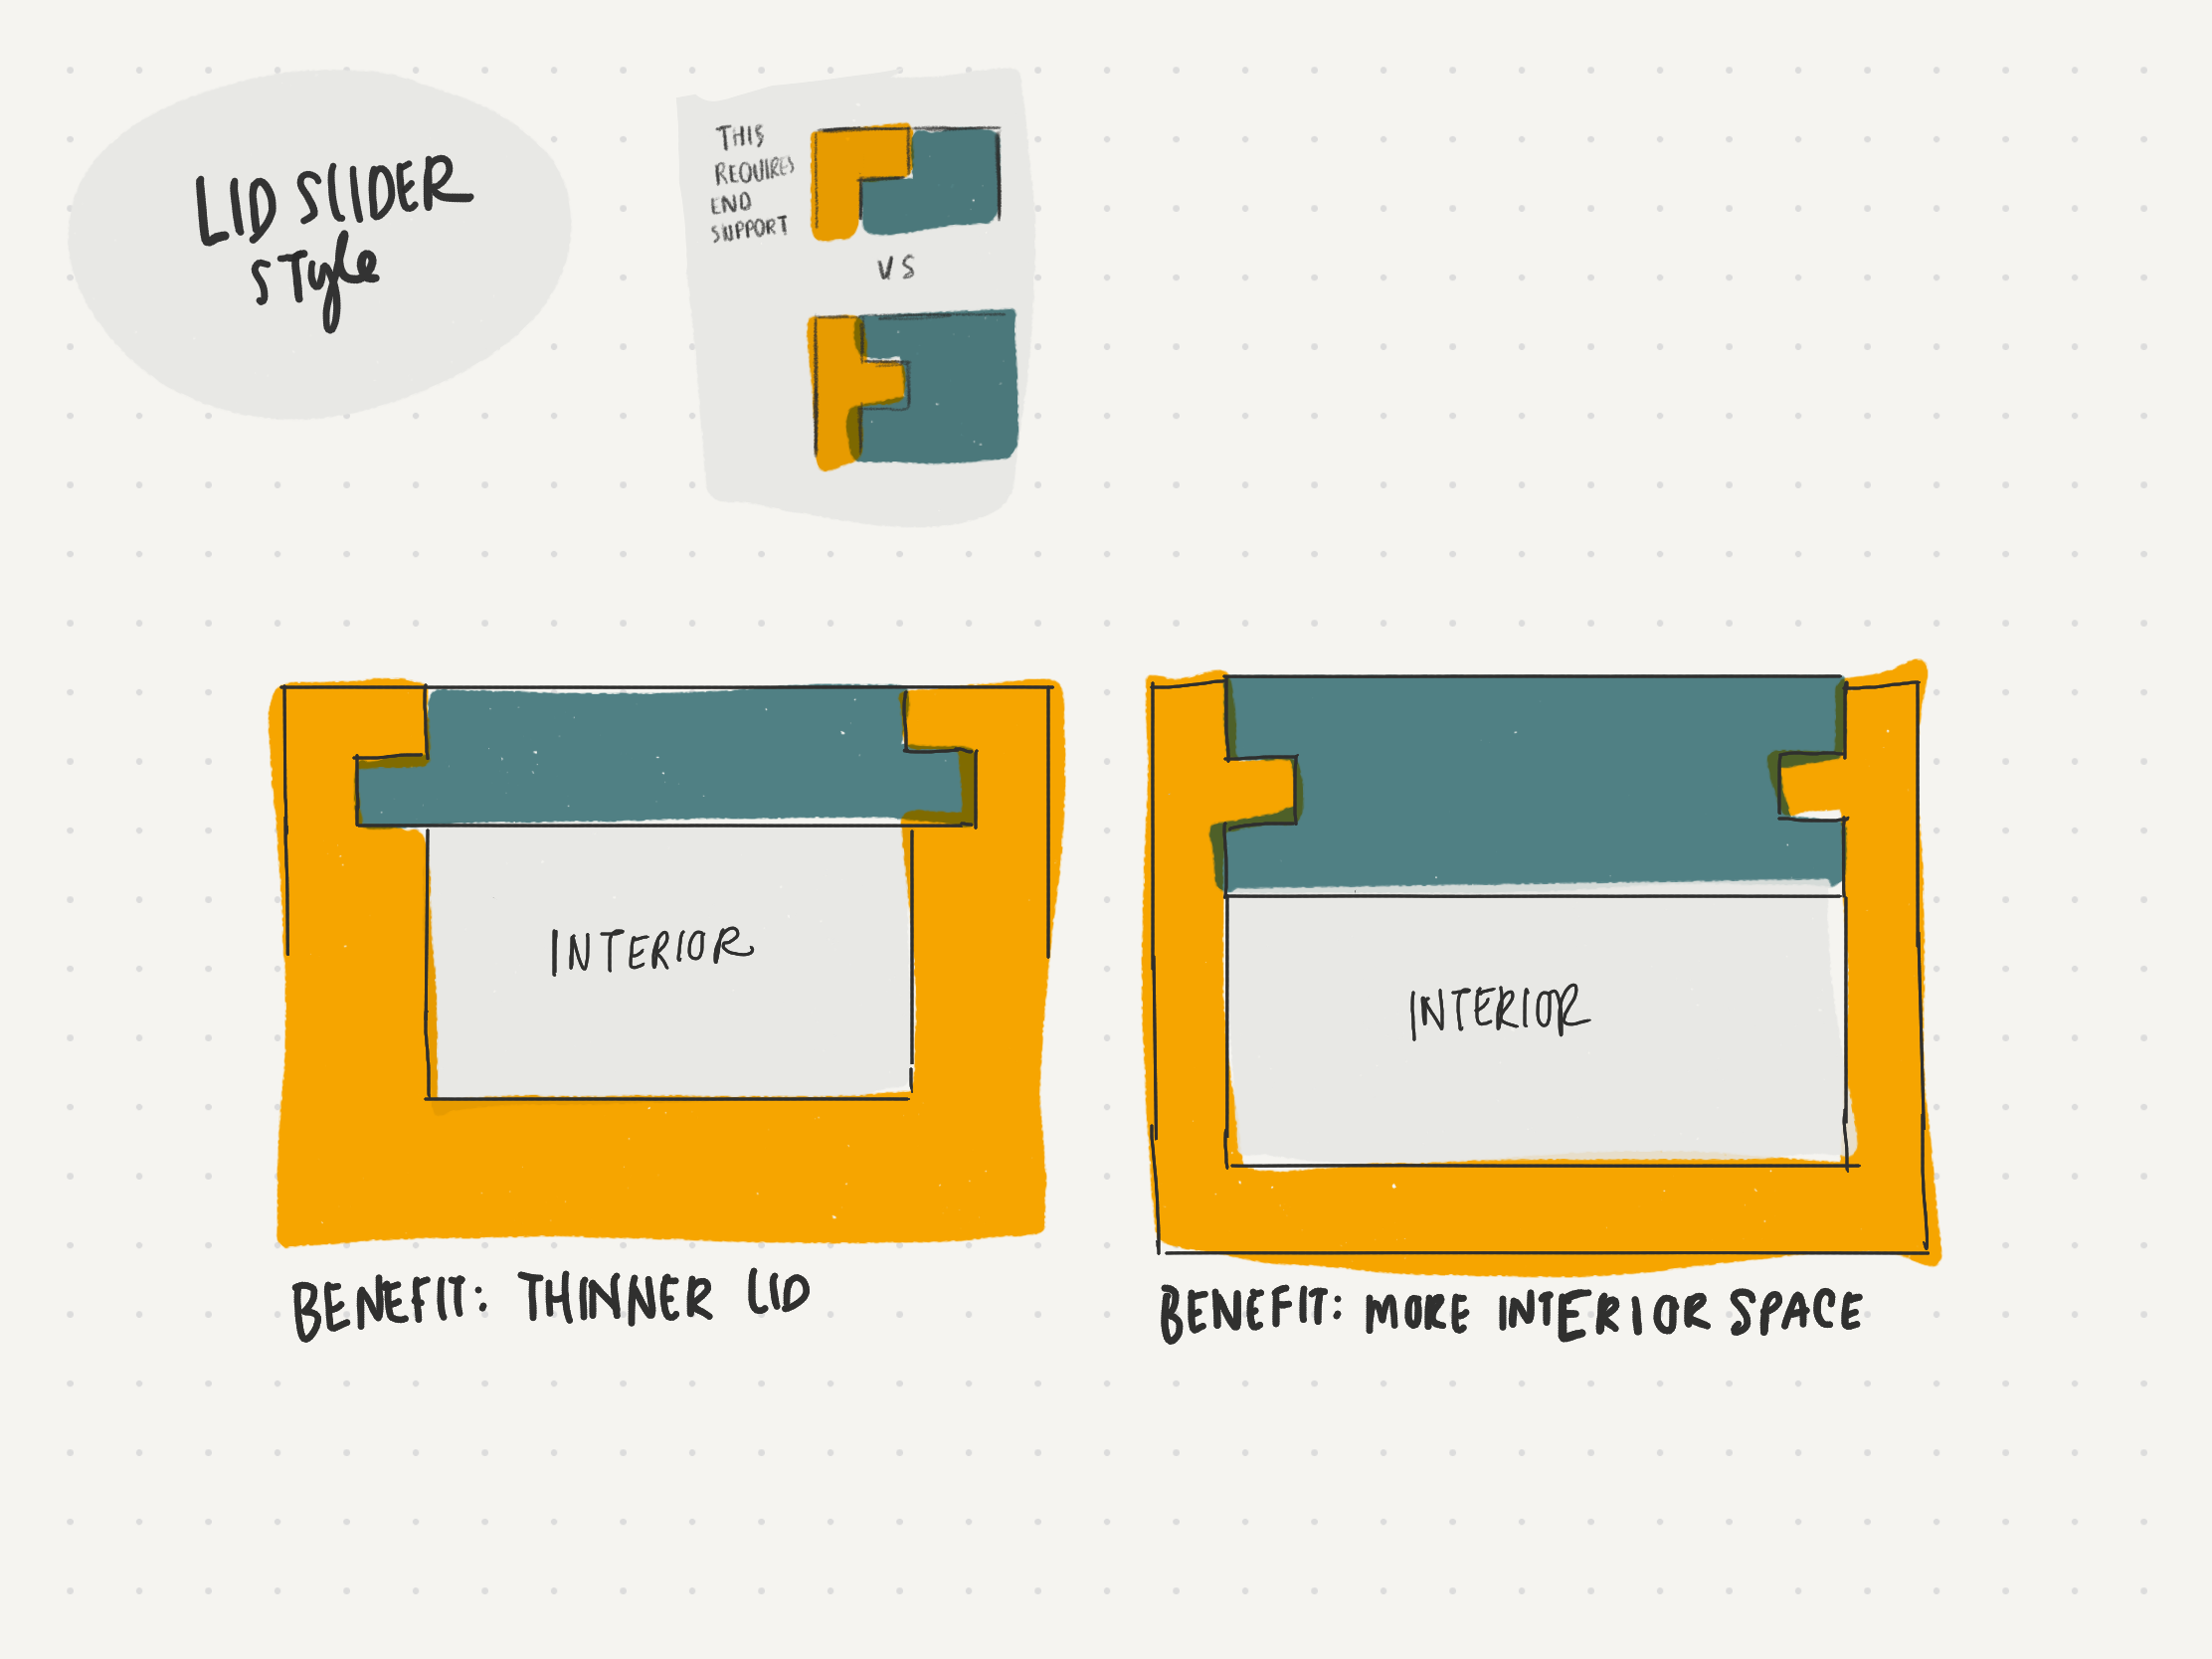 LID SLIDER
STyle
THIS
REQUIRES
END
SUPPORT
VS
INTERIOR
INTERIOR
BENEFIT: THINNER LID
BENEFIT: MORE INTERIOR SPACE